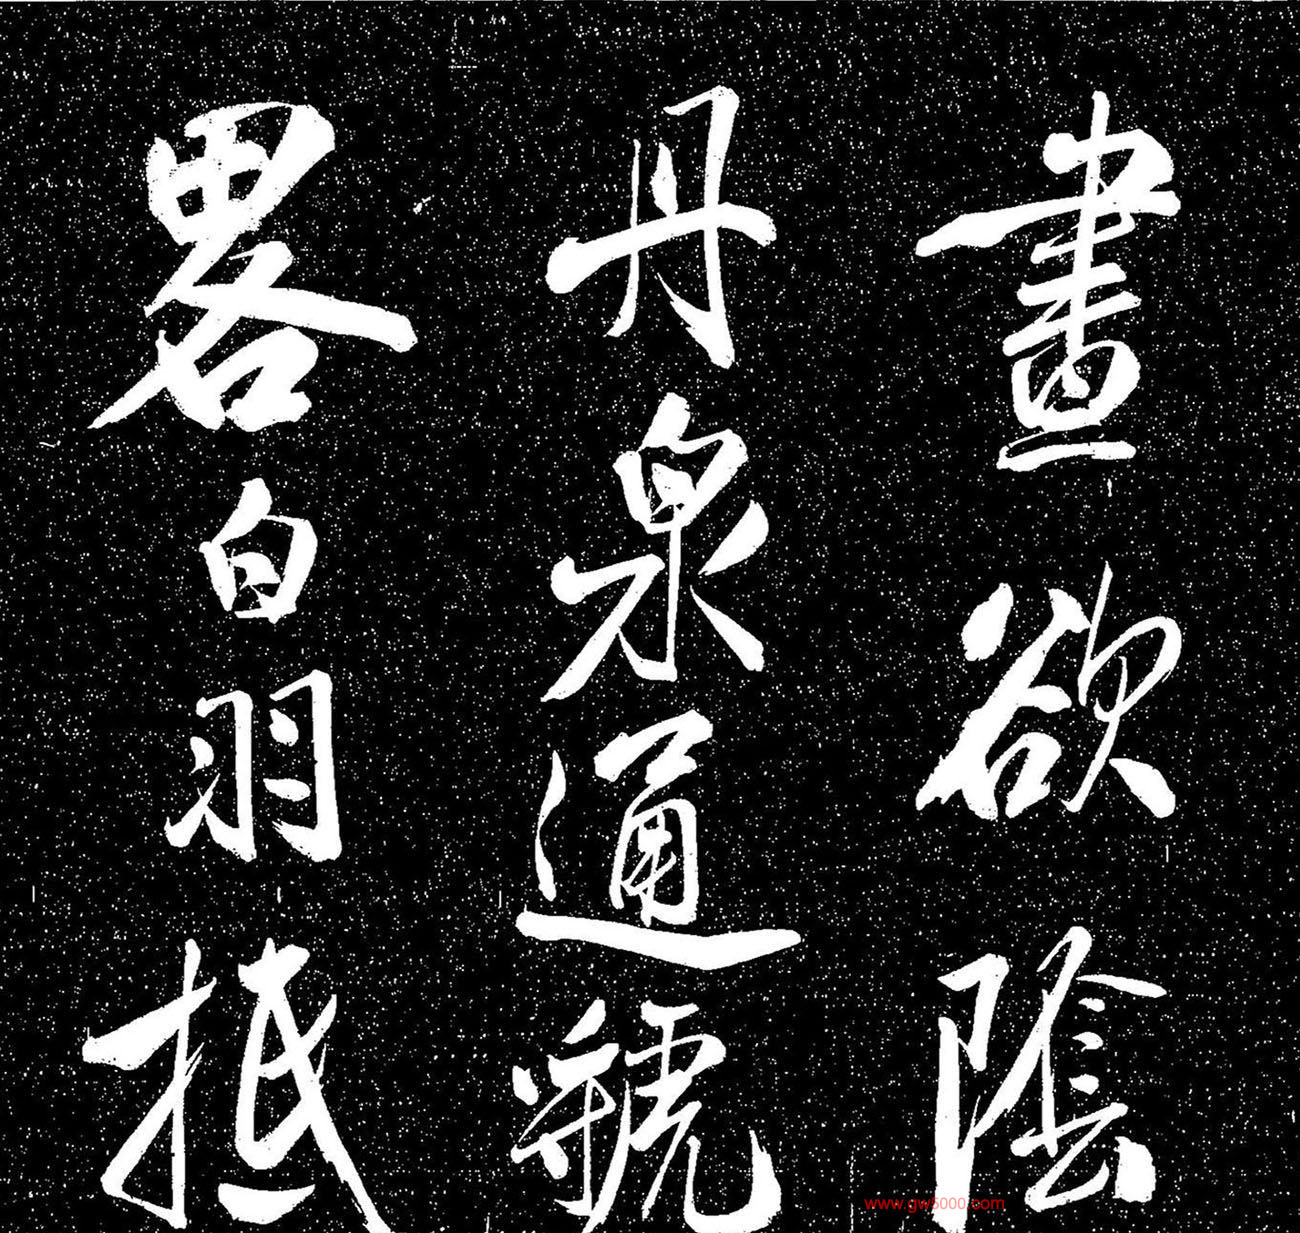 畫欲陰
丹泉通虢
畧白羽抵
www.gw5000.com